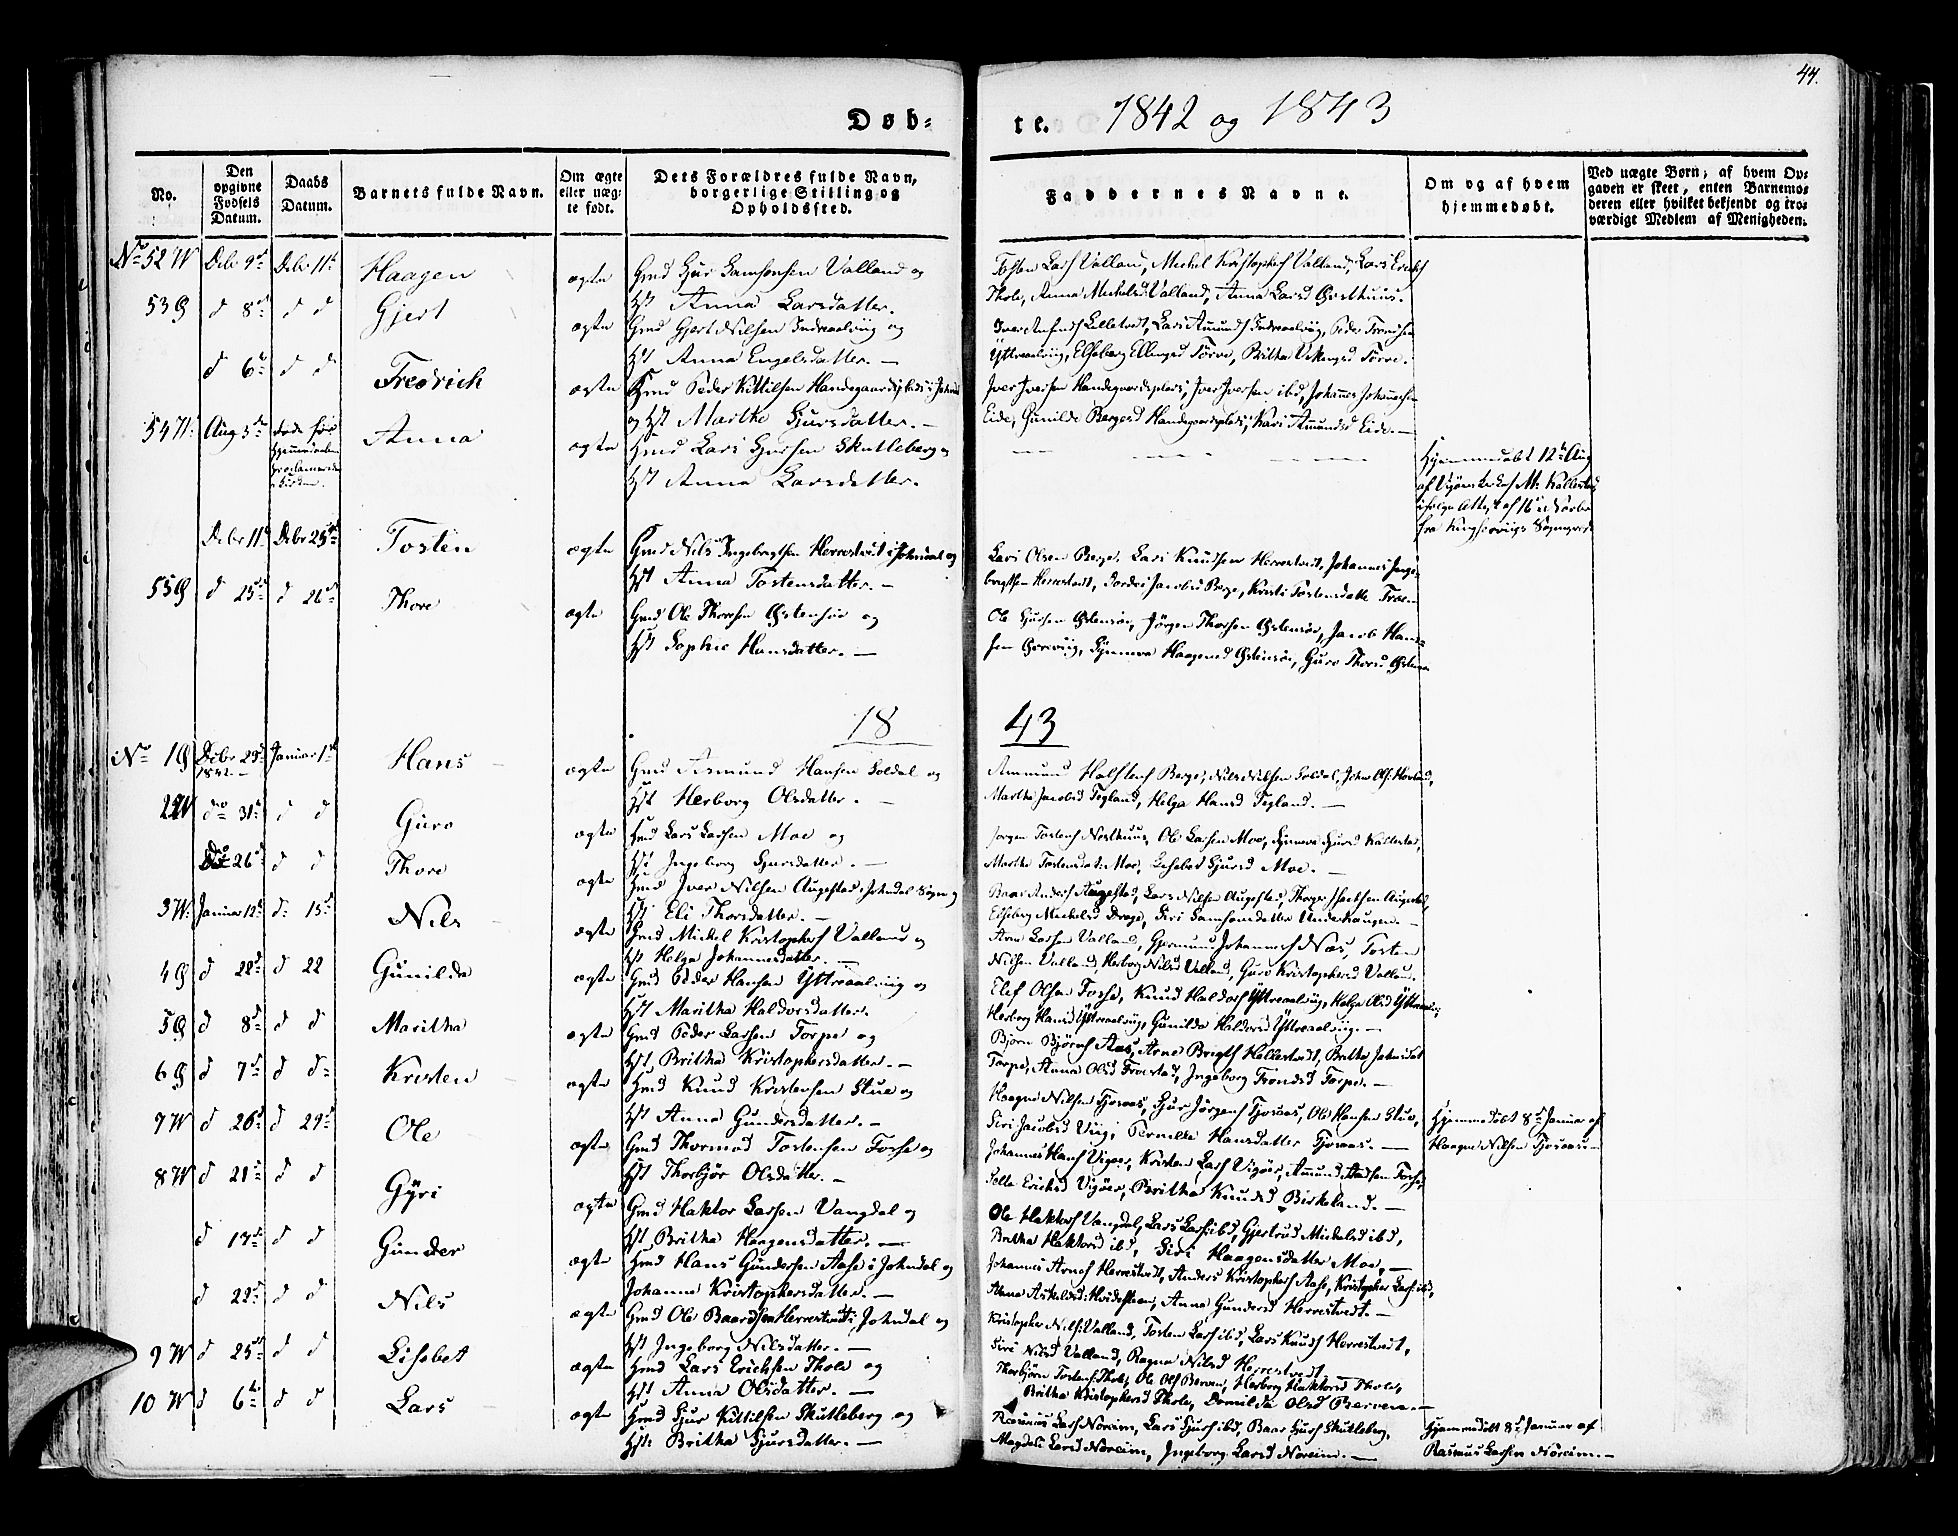 44.
Døb-
te. 1842 og 1843
No.
Den opgivne Fødsels Datum.
Daabs Datum.
Barnets fulde Navn.
Om ægte eller uæg-te født.
Dets Forældres fulde Navn, borgerlige Stilling og Opholdssted.
Faddernes Navne.
Om og af hvem hjemmedøbt.
Ved uægte Børn; af hvem Op-gaven er skeet, enten Barnemo-deren eller hvilket bekjendt og tro-værdigt Medlem af Menigheden.
No 52 W Debr 9d Debr 11t Haagen ægte Gmd Sjur Samsonsen Valland og
Hst Anna Larsdatter.
Tosten Lars Valland, Mickel Kristophers Valland, Lars Erichs
Thole, Anna Mickelsd Valland, Anna Larsd
53 G d 8d d d Gjert ægte Gmd Gjert Nilsen Indreaalviig og
Hst Anna Engelsdatter. —
Lars Amunds Indreaalviig, Peder Trondsen
Yttreaalviig, Elseberg Ellingsd Torve, Britha Torve.
d 6t d d Fredrich ægte Hmd Peder Kittilsen Handegaardsplads i Johnd
og Hst Marthe Sjursdatter. —
Iver Iversen Handegaardsplads, Iver Iversen ibd, Johannes Johannesen
Eide, Gunilde Bergesd Handegaardsplads, Kari Amundsd Eide. —
54 W Aug 5te døde før Anna ægte Hmd Lars Sjursen Skutleberg og
Hst Anna Larsdatter.
Hjemmedøbt 12t Aug
af M: Kallestad
ifølge Attest af 16 October
fra Kingservigs Sognepræst
Debr 11t Debr 25de Tosten ægte Gmd Nils Ingebrigtsen Herrestvedt i Johndal og
Hst Anna Tostensdatter. —
Lars Olsen Berge, Lars Knudsen Herrestvedt, Johannes Inge-
brigtsen Herrestvedt, Jacobsd Berge, Kristi Tostensdatter
55 G d 25de d 26d Thore ægte Gmd Ole Thoresen Østensøe og
Hst Sophie Hansdatter. —
Ole Sjursen Østensøe, Jørgen Thorsen Østensøe, Jacob Han-
sen Synneva Haagensd Østensøe, Guro Thorsd Østensøe
18 43
No 1 G Debr 29d 1842 Januar 1st Hans ægte Gmd Asmund Hansen Soldal og
Hst Herborg Olsdatter. —
Ammund Halstens Berge, Nils Nilsen Soldal,
Martha Jacobsd Tegland, Helga Hansd Tegland. —
2 W do 31t d d Guro ægte Hmd Lars Larsen Moe og
Hst Ingeborg Sjursdatter. —
Jørgen Tostens Northuus, Ole Larsen Moe, Synneva Sjursd Kallestad,
Martha Tostensdat: Moe, Lisabet Sjursd Moe. —
Do 26d d d Thore ægte Gmd Iver Nilsen Augestad i Johndal Sogn og
Hst Eli Thorsdatter. —
Baar Anders Augestad, Lars Nilsen Augestad,
Elseberg Mickelsd Drage, Siri Samsonsdatter Underhaugen —
3 W. Januar 12t d: 15d Nils ægte Gmd Mickel Kristophers Valland og
Hst Helga Johannesdatter. —
Arne Larsen Valland, Johannes Næs, Tosten
Nilsen Valland, Herborg Nilsd Valland, Guro Kristophersd Valland.
4 G d 22d d 22 Gunilda ægte Gmd Peder Hansen Yttreaalviig og
Hst Maritha Haldorsdatter.
Elef Olsen Torse, Knud Haldors Yttreaalviig, Helga Olsd Yttreaalviig,
Herborg Hansd Yttreaalviig, Gunilda Haldorsd Yttreaalviig. —
5 G d 8d d d Maritha ægte Gmd Peder Larsen Torpe og
Hst Britha Kristophersdatter. —
Bjørn Bjørns Aas, Arne Brigts Hallestvedt, Britha Johnsdat
Torpe, Anna Olsd Ingeborg Trondsd Torpe. —
6 G d 7d d d: Kristen ægte Hmd Knud Kristensen Stue og
Hst Anna Gundersdatter. —
Haagne Nilsen Tjoraas, Sjur Jørgens Tjoraas, Ole Hansen Stue,
Siri Jacobsd Viig, Pernille Hansdatter Tjoraas. —
Hjemmedøbt 8d Januar af
Haagne Nilsen Tjoraas. —
7 W d 26d d 29d Ole ægte Gmd Thormod Tostensen Torse og
Hst Thorbjør Olsdatter. —
Johannes Hans Vigøer, Kristen Lars Vigøer, Amund Torse,
Erichsd Vigøer, Britha Knudsd Birkeland. —
8 W d 21d d d Gyri ægte Gmd Haktor Larsen Vangdal og
Hst Britha Haagensdatter. —
Ole Haktors Vangdal, Lars Lars: ibd, Gjertrud Mickelsd ibd,
Britha Haktorsd ibd, Siri Haagensdatter Moe. —
d 17d d d Gunder ægte Hmd Hans Gundersen Aase i Johndal og
Johanna Kristophersdatter. —
Johannes Arnes Herrestvedt, Anders Kristophers Aase, Kristopher Lars: ibd,
Anna Anna Gundersd Herrestvedt. —
d 22d d d Nils ægte Gmd Ole Baardsen Herrestvedt i Johndal og
Hst Ingeborg Nilsdatter. —
Kristopher Nils: Valland, Tosten Lars ibd, Lars Knuds Herrestvedt,
Siri Nilsd Valland, Ragna Nilsd Herrestvedt.
9 W d 25d d d Lisabet ægte Hmd Lars Erichsen Thole og
Hst Anna Olsdatter. —
Thorbjørn Tostens: Thole, Ole Ols Berven, Herborg Haktorsd Thole,
Britha Kristophersd Thole, Domilda Olsd Berven. —
10 W d 6te d d Lars ægte Hmd Sjur Kittilsen Skutleberg og
Hst: Britha Sjursdatter. —
Rasmus Lars Noreim, Lars Sjurs ibd, Baar Sjurs Skutleberg,
Magdeli Larsd Noreim, Ingeborg Larsd Noreim. —
Hjemmedøbt 8d Januar af
Rasmus Larsen Noreim. —